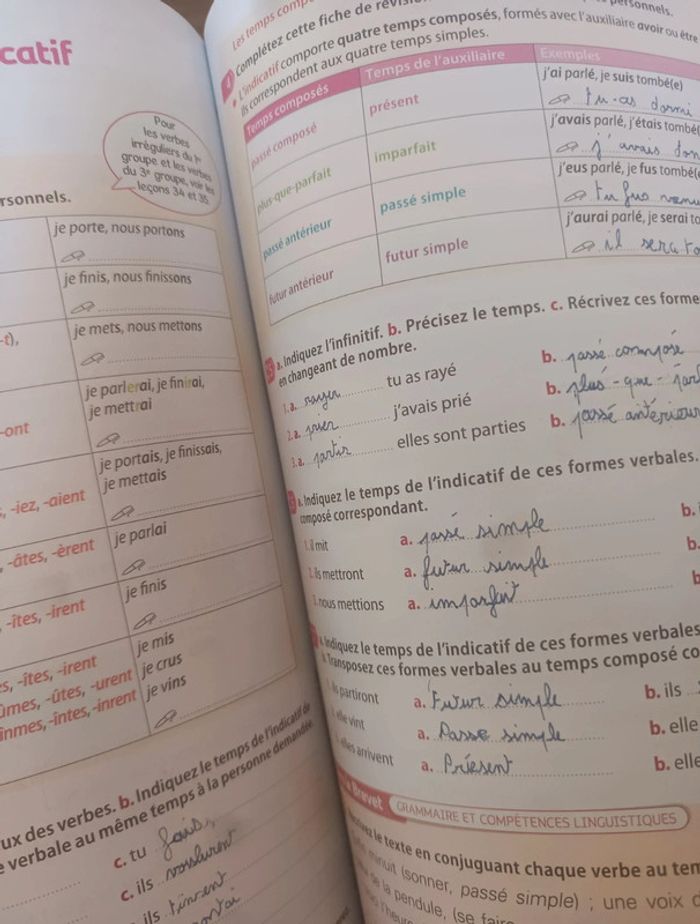 catif
Pour
les verbes
irréguliers du 1er
groupe et les verbes
du 3e groupe, voir les
leçons 34 et 35.
rsonnels.
je porte, nous portons
je finis, nous finissons
-t),
je mets, nous mettons
je parlerai, je finirai,
je mettrai
-ont
je portais, je finissais,
je mettais
, -iez, -aient
je parlai
, -âtes, -èrent
je finis
-îtes, -irent
je mis
s, -îtes, -irent
je crus
ûmes, -ûtes, -urent
je vins
înmes, -întes, -inrent
ux des verbes. b. Indiquez le temps de l'indicatif de
e verbale au même temps à la personne demandée.
c. tu fais,
c. ils voulurent
ils tinrent
Les temps comp
personnels.
Complétez cette fiche de révisi
• L'indicatif comporte quatre temps composés, formés avec l'auxiliaire avoir ou être
Ils correspondent aux quatre temps simples.
Temps composés Temps de l'auxiliaire Exemples
passé composé présent j'ai parlé, je suis tombé(e)
tu as dormi
plus-que-parfait imparfait j'avais parlé, j'étais tombé
j'avais dor
passé antérieur passé simple j'eus parlé, je fus tombé(e
tu fus venu
futur antérieur futur simple j'aurai parlé, je serai to
il sera to
a. Indiquez l'infinitif. b. Précisez le temps. c. Récrivez ces forme
en changeant de nombre.
1. a. rayer tu as rayé b. passé composé
2. a. prier j'avais prié b. plus-que-parf
3. a. partir elles sont parties b. passé antérieur
a. Indiquez le temps de l'indicatif de ces formes verbales.
composé correspondant.
1. il mit a. passé simple b.
2. ils mettront a. futur simple b.
3. nous mettions a. imparfait b
a. Indiquez le temps de l'indicatif de ces formes verbales
Transposez ces formes verbales au temps composé co
ils partiront a. Futur simple b. ils
elle vint a. Passé simple b. elle
elles arrivent a. Présent b. elle
Brevet GRAMMAIRE ET COMPÉTENCES LINGUISTIQUES
le texte en conjuguant chaque verbe au tem
minuit (sonner, passé simple) ; une voix c
de la pendule, (se faire